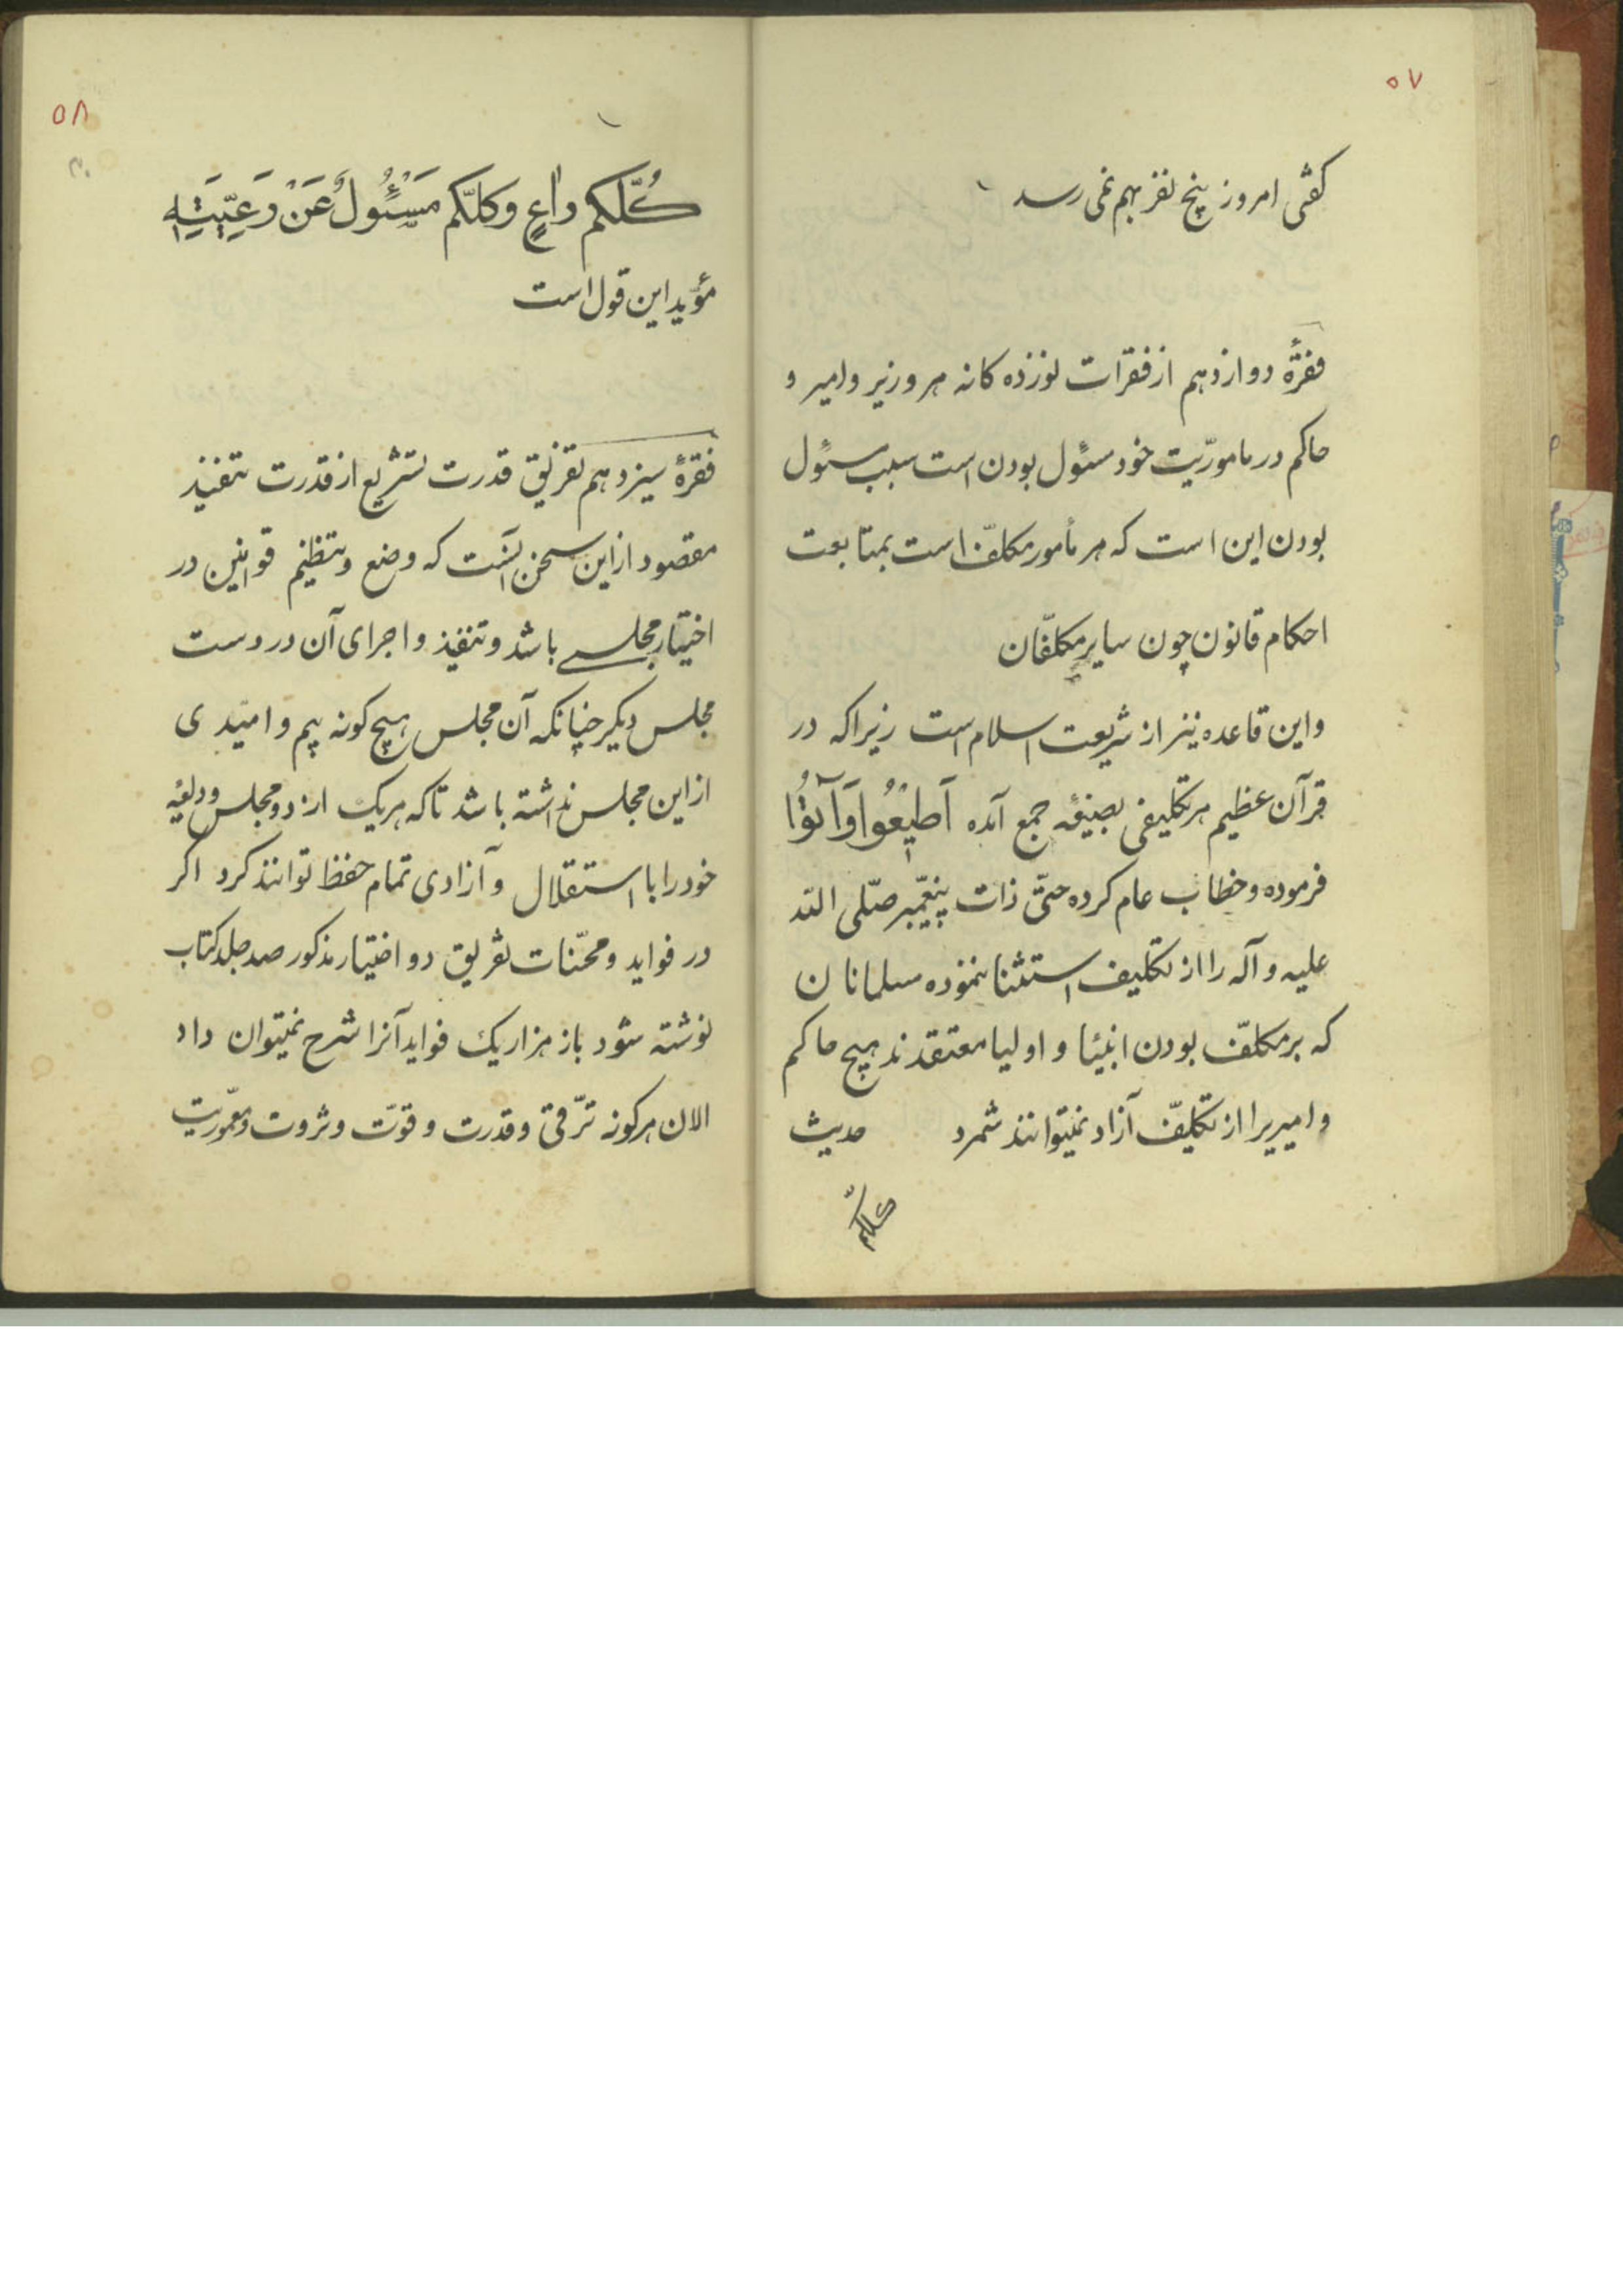 ۵۷
کفتی امروز پنج نفر بهم نمی رسد
فقرهٔ دوازدهم از فقرات نوزده کانه هر وزیر و امیر و
حاکم در ماموریّت خود مسئول بودن است سبب مسئول
بودن این است که هر مأمور مکلّف است بمتابعت
احکام قانون چون سایر مکلّفان
و این قاعده نیز از شریعت اسلام است زیرا که در
قرآن عظیم هر تکلیفی بصیغهٔ جمع آمده اَطیعُوا وَآتُوا
فرموده و خطاب عام کرده حتّی ذات پیغمبر صلّی الله
علیه و آله را از تکلیف استثنا ننموده مسلمانان
که بر مکلّف بودن انبیا و اولیا معتقدند هیچ حاکم
و امیریرا از تکلیف آزاد نمیتوانند شمرد حدیث
کلّکم
۵۸
کُلّکم راعٍ وکلّکم مَسْئُولٌ عَنْ رَعِیَّتِهِ
مؤید این قول است
فقرهٔ سیزدهم تفریق قدرت تشریع از قدرت تنفیذ
مقصود از این سخن آنست که وضع و تنظیم قوانین در
اختیار مجلسی باشد و تنفیذ و اجرای آن در دست
مجلس دیکر چنانکه آن مجلس هیچ کونه بیم و امیدی
از این مجلس نداشته باشد تا که هریک از دو مجلس ودیعهٔ
خود را با استقلال و آزادی تمام حفظ توانند کرد اکر
در فواید و محسّنات تفریق دو اختیار مذکور صد جلد کتاب
نوشته شود باز هزار یک فواید آنرا شرح نمیتوان داد
الان هرکونه ترّقی و قدرت و قوّت و ثروت و معموّریت